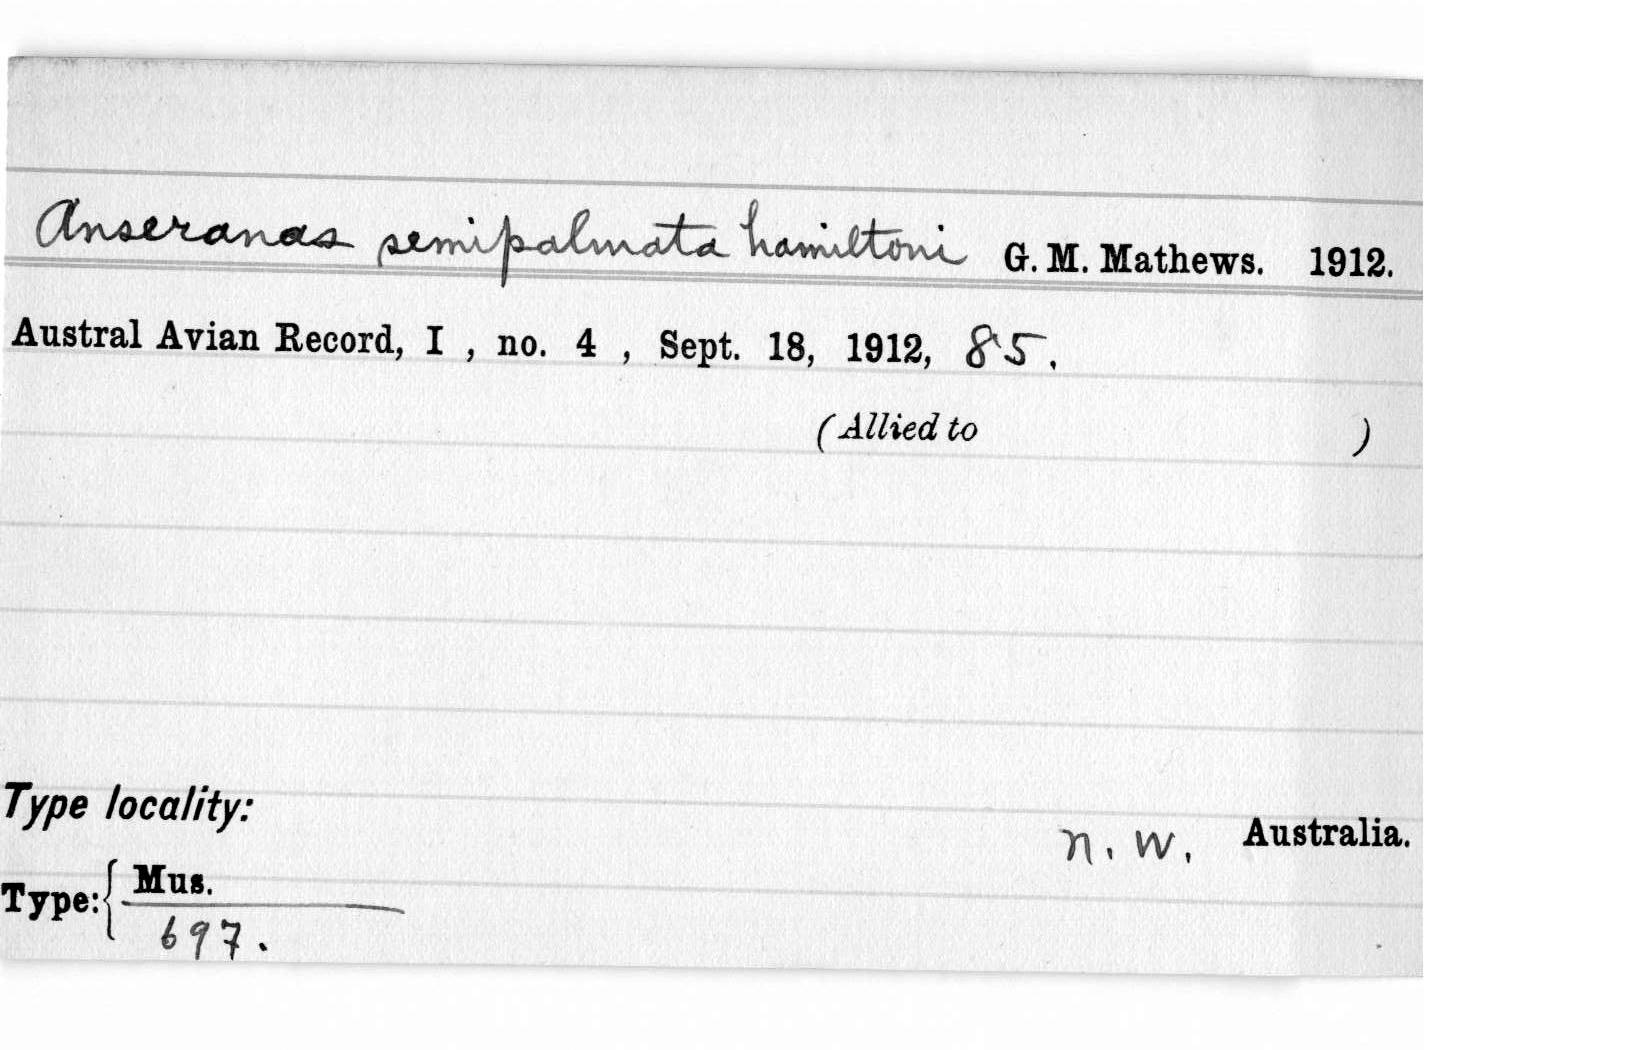 Anseranas semipalmata hamiltoni G. M. Mathews. 1912.
Austral Avian Record, I , no. 4 , Sept. 18, 1912, 85.
(Allied to )
Type locality:
n. W. Australia.
Type: { Mus.
697.